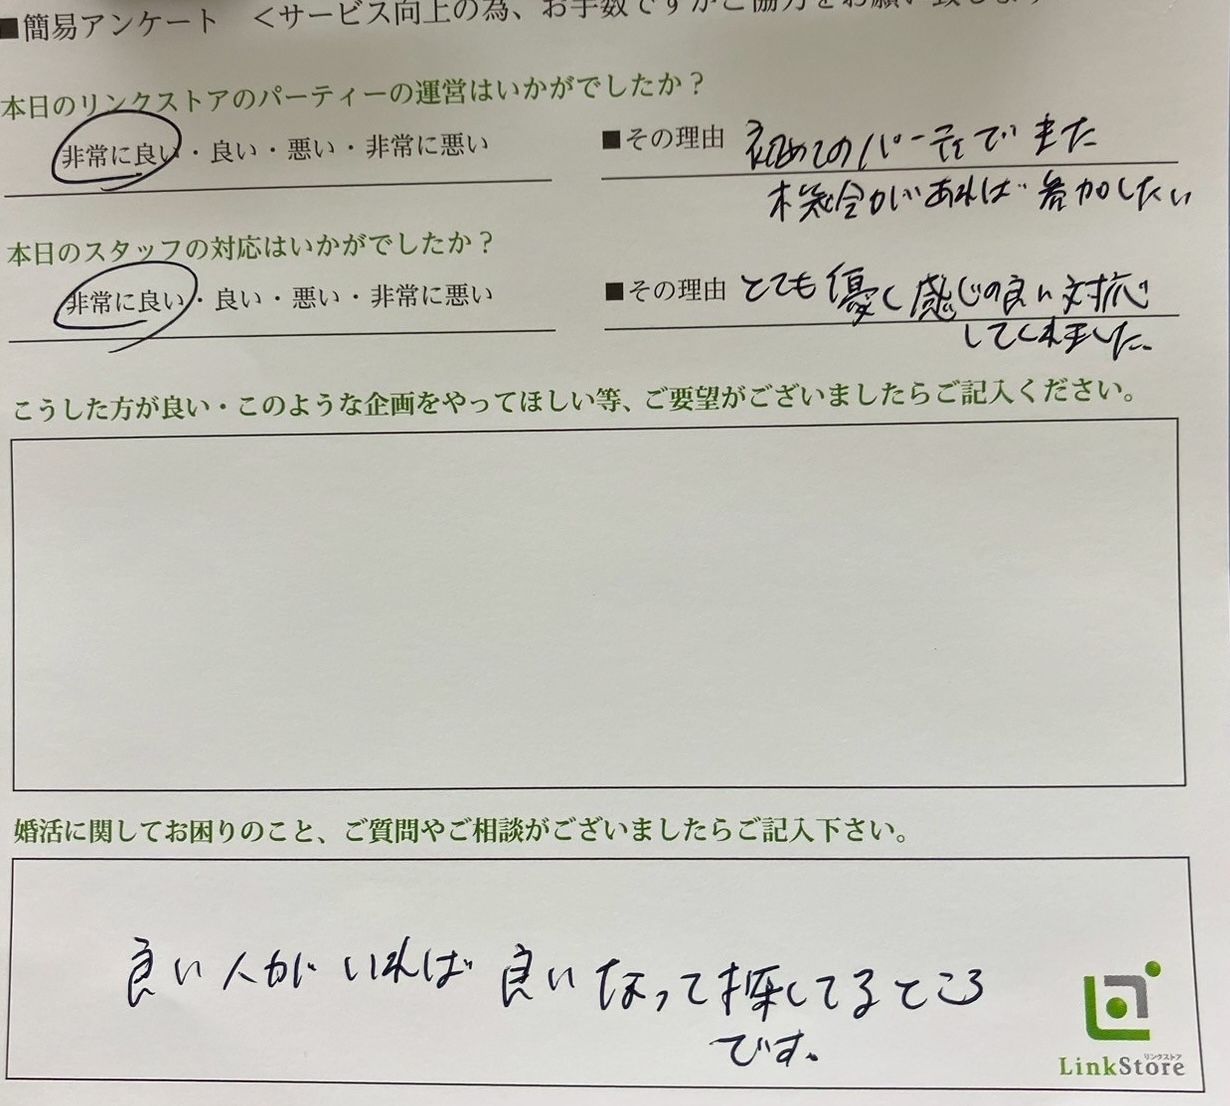 ■簡易アンケート ＜サービス向上の為、お手数ですがご協力をお願い致します
本日のリンクストアのパーティーの運営はいかがでしたか？
非常に良い・良い・悪い・非常に悪い ■その理由 初めてのパーティで また
機会がいあれば 参加したい
本日のスタッフの対応はいかがでしたか？
非常に良い・良い・悪い・非常に悪い ■その理由 とても優しく感じの良い対応
してくれました。
こうした方が良い・このような企画をやってほしい等、ご要望がございましたらご記入ください。
婚活に関してお困りのこと、ご質問やご相談がございましたらご記入下さい。
良い人がいれば 良いなって探してるところ
です。
リンクストア
LinkStore